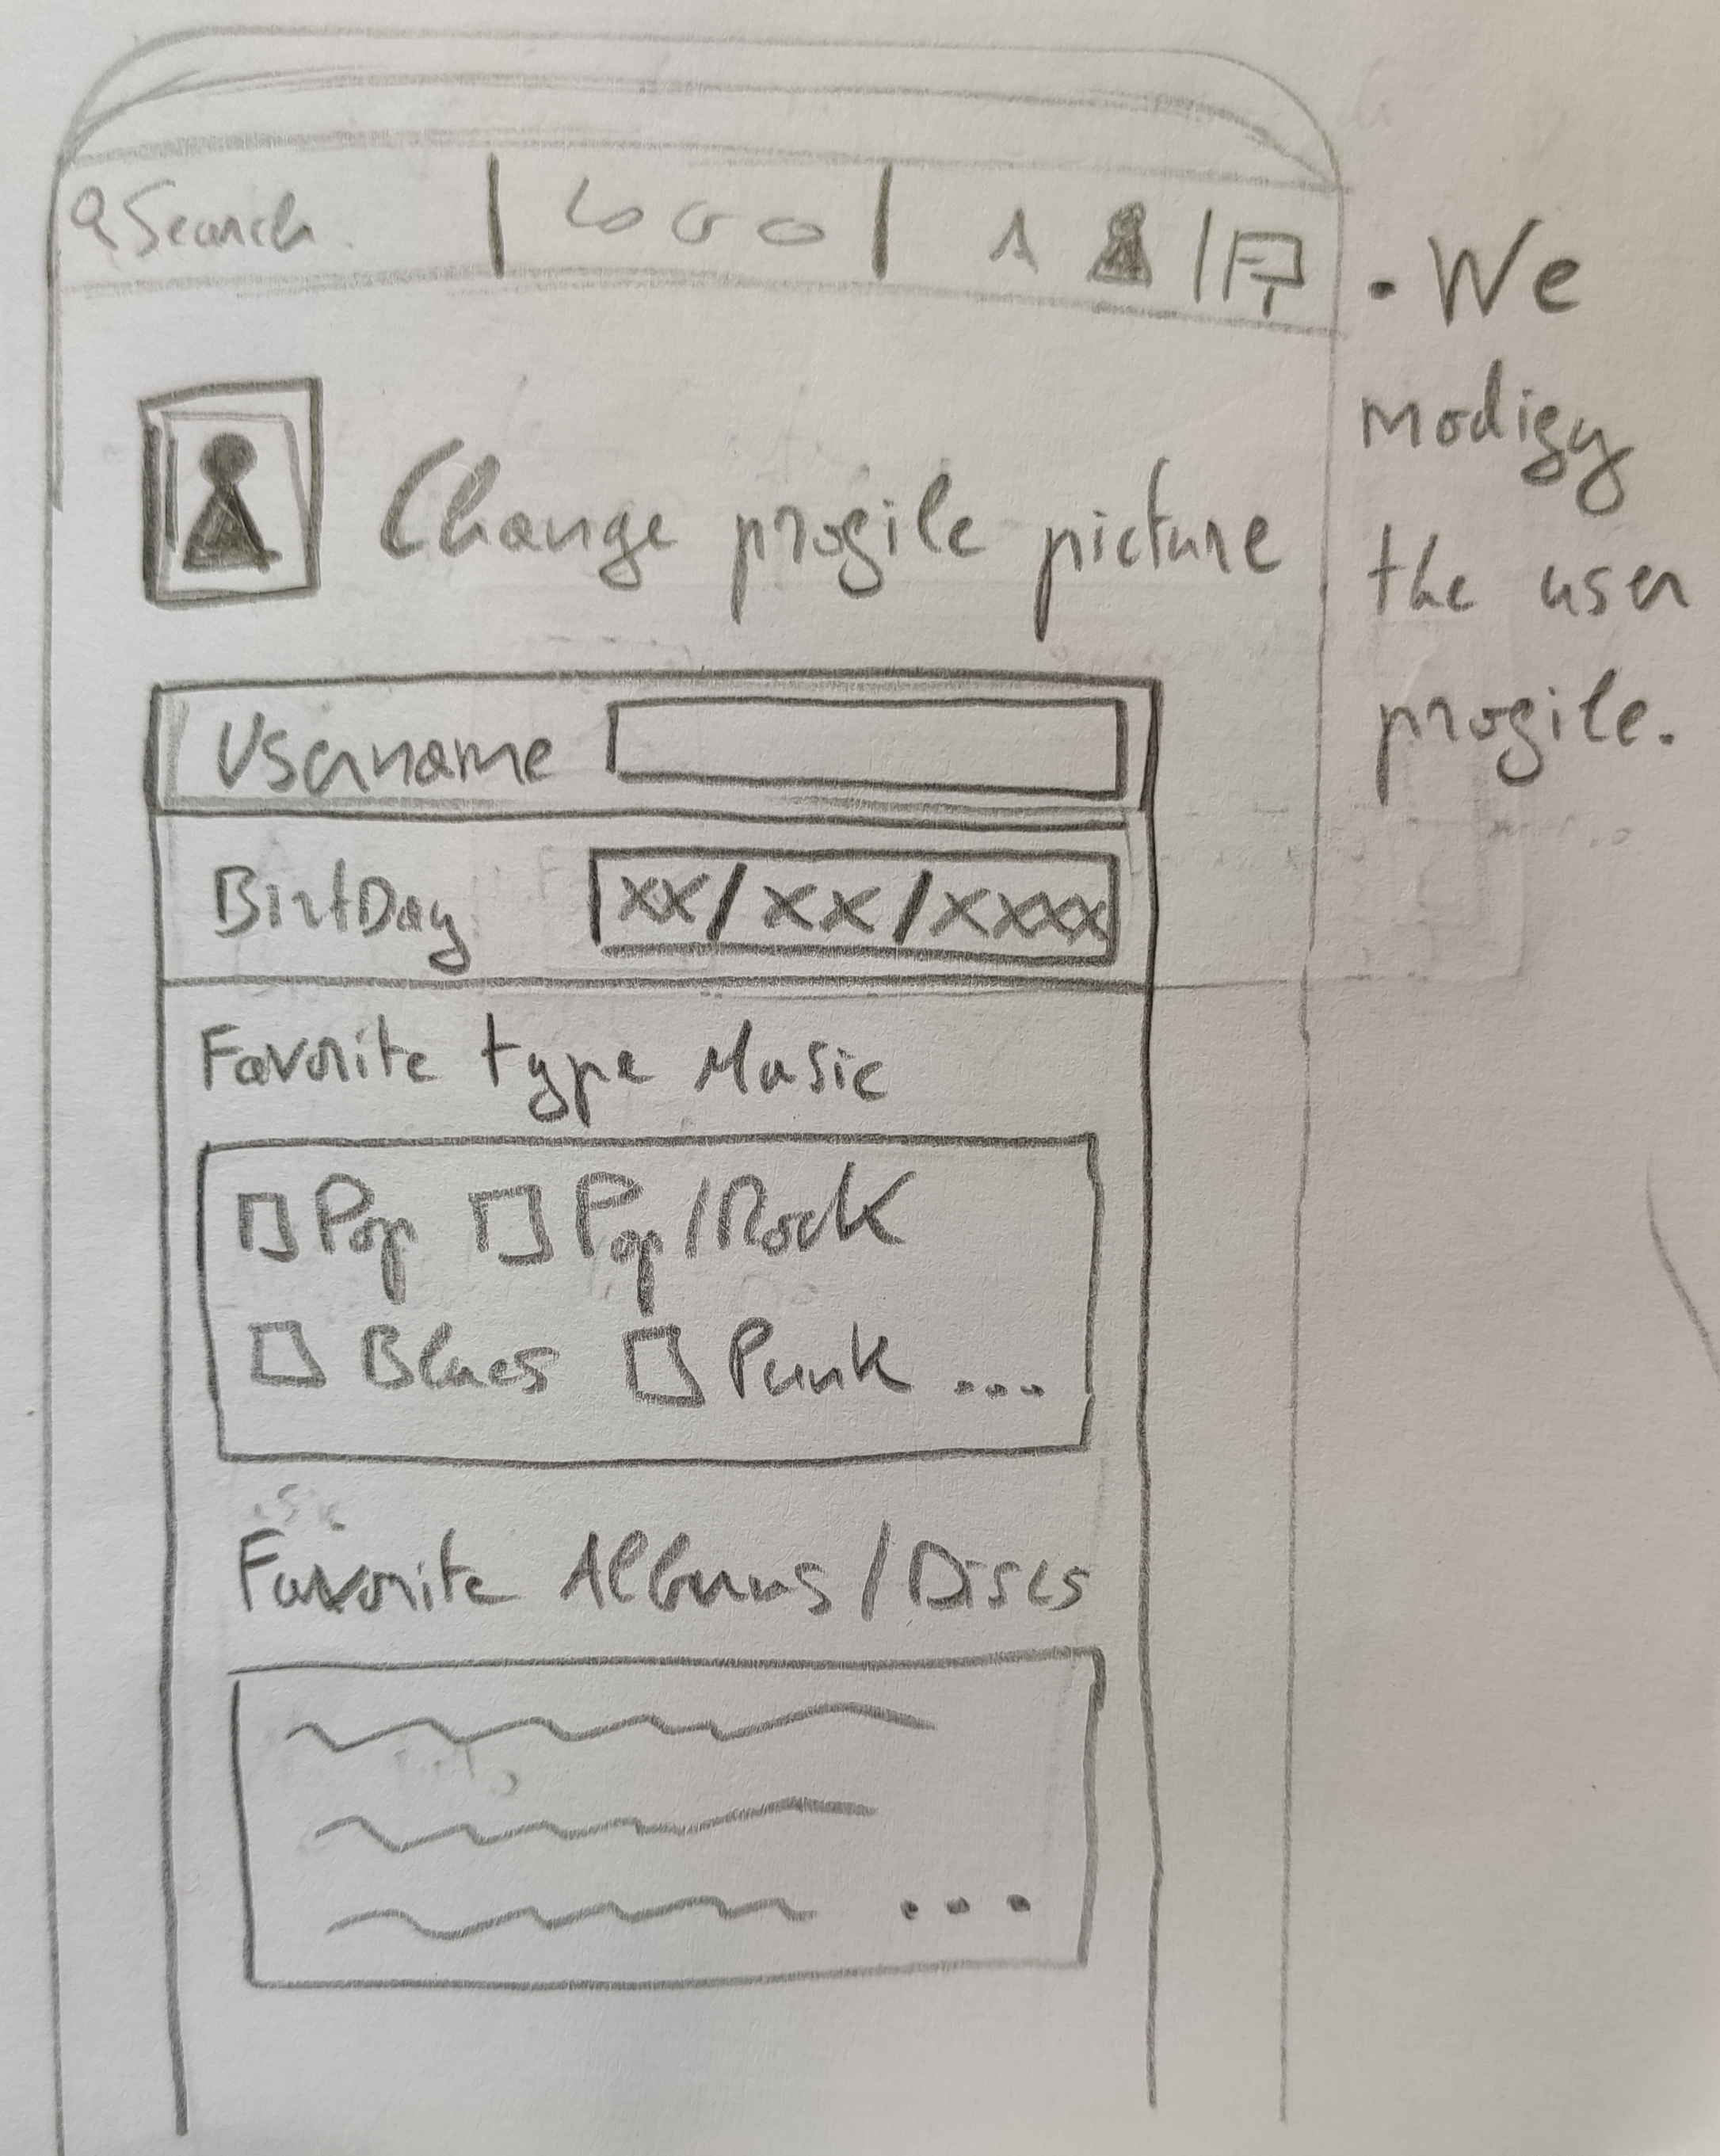 Search
LOGO
Change profile picture
Username
BirtDay
xx/xx/xxxx
Favorite type Music
Pop Pop/Rock
Blues Punk ...
Favorite Albums/Discs
...
• We
modify
the user
profile.